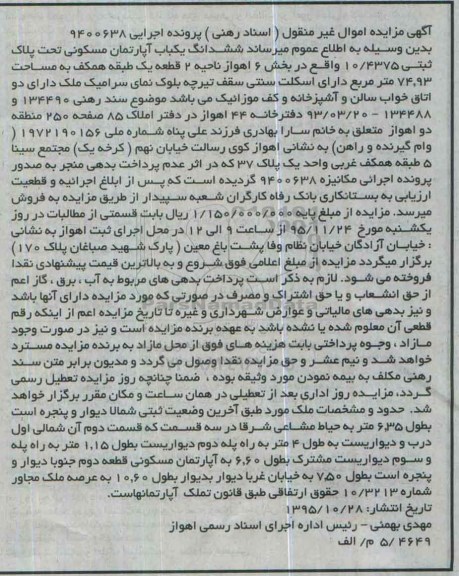 آگهی مزایده اموال غیر منقول ( اسناد رهنی ) پرونده اجرایی ۹۴۰۰۶۳۸
بدین وسیله به اطلاع عموم میرساند ششدانگ یکباب آپارتمان مسکونی تحت پلاک
ثبتی ۱۰/۴۳۷۵ واقع در بخش ۶ اهواز ناحیه ۲ قطعه یک طبقه همکف به مساحت
۷۴,۹۳ متر مربع دارای اسکلت سنتی سقف تیرچه بلوک نمای سرامیک ملک دارای دو
اتاق خواب سالن و آشپزخانه و کف موزائیک می باشد موضوع سند رهنی ۱۳۴۴۹۰ و
۱۳۴۴۸۸ - ۹۳/۰۳/۲۰ دفترخانه ۴۴ اهواز در دفتر املاک ۸۵ صفحه ۲۵۰ منطقه
دو اهواز متعلق به خانم سارا بهادری فرزند علی پناه شماره ملی ۱۹۷۲۱۹۰۱۵۶ (
وام گیرنده و راهن) به نشانی اهواز کوی رسالت خیابان نهم ( کرخه یک) مجتمع سینا
۵ طبقه همکف غربی واحد یک پلاک ۳۷ که در اثر عدم پرداخت بدهی منجر به صدور
پرونده اجرائی مکانیزه ۹۴۰۰۶۳۸ گردیده است که پس از ابلاغ اجرائیه و قطعیت
ارزیابی به بستانکاری بانک رفاه کارگران شعبه سپیدار از طریق مزایده به فروش
میرسد. مزایده از مبلغ پایه ۱/۱۵۰/۰۰۰/۰۰۰ ریال بابت قسمتی از مطالبات در روز
یکشنبه مورخ ۹۵/۱۱/۲۴ از ساعت ۹ الی ۱۲ در محل اجرای ثبت اهواز به نشانی
: خیابان آزادگان خیابان نظام وفا پشت باغ معین ( پارک شهید صباغان پلاک ۱۷۰ )
برگزار میگردد مزایده از مبلغ اعلامی فوق شروع و به بالاترین قیمت پیشنهادی نقدا
فروخته می شود. لازم به ذکر است پرداخت بدهی های مربوط به آب ، برق ، گاز اعم
از حق انشعاب و یا حق اشتراک و مصرف در صورتی که مورد مزایده دارای آنها باشد
و نیز بدهی های مالیاتی و عوارض شهرداری و غیره تا تاریخ مزایده اعم از اینکه رقم
قطعی آن معلوم شده یا نشده باشد به عهده برنده مزایده است و نیز در صورت وجود
مازاد ، وجوه پرداختی بابت هزینه های فوق از محل مازاد به برنده مزایده مسترد
خواهد شد و نیم عشر و حق مزایده نقدا وصول می گردد و مدیون برابر متن سند
رهنی مکلف به بیمه نمودن مورد وثیقه بوده ، ضمنا چنانچه روز مزایده تعطیل رسمی
گردد، مزایده روز اداری بعد از تعطیلی در همان ساعت و مکان مقرر برگزار خواهد
شد. حدود و مشخصات ملک مورد طبق آخرین وضعیت ثبتی شمالا دیوار و پنجره است
بطول ۶,۳۵ متر به حیاط مشاعی شرقا در سه قسمت که قسمت دوم آن شمالی اول
درب و دیواریست به طول ۴ متر به راه پله دوم دیواریست بطول ۱,۱۵ متر به راه پله
و سوم دیواریست مشترک بطول ۶,۶۰ به آپارتمان مسکونی قطعه دوم جنوبا دیوار و
پنجره است بطول ۷,۵۰ به خیابان غربا دیوار بدیوار بطول ۱۰,۶۰ به عرصه ملک مجاور
شماره ۱۰/۳۲۱۳ حقوق ارتفاقی طبق قانون تملک آپارتمانهاست.
تاریخ انتشار: ۱۳۹۵/۱۰/۲۸
مهدی بهمئی - رئیس اداره اجرای اسناد رسمی اهواز
۵/ ۴۶۴۹ م/ الف